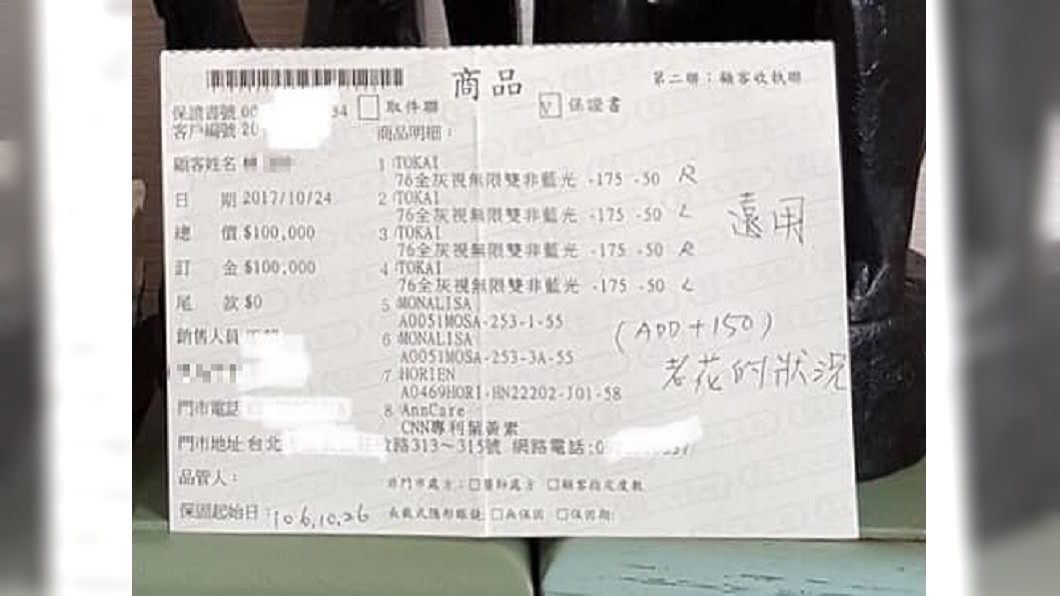 商品
第二聯：顧客收執聯
保證書號 00 34 取件聯 V 保證書
客戶編號 20 商品明細：
顧客姓名
日 期 2017/10/24
總 價 $100,000
訂 金 $100,000
尾 款 $0
銷售人員
門市電話
門市地址 台北 路313～315號 網路電話:0
品管人：
保固起始日：106.10.26
1 TOKAI
76全灰視無限雙非藍光 -175 -50 R
2 TOKAI
76全灰視無限雙非藍光 -175 -50 L
3 TOKAI
76全灰視無限雙非藍光 -175 -50 R
4 TOKAI
76全灰視無限雙非藍光 -175 -50 L
5 MONALISA
A0051MOSA-253-1-55
6 MONALISA
A0051MOSA-253-3A-55
7 HORIEN
A0469HORI-HN22202-J01-58
8 AnnCare
CNN專利葉黃素
非門市處方：□醫師處方 □顧客指定度數
長戴式隱形眼鏡 □無保固 □保固期:
遠用
(ADD+150)
老花的狀況